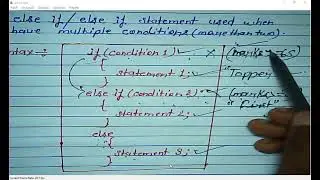 else if / else if statement used when
have multiple conditions (more than two).
ntax :
if (condition 1) ✓ × (marks
{
statement 1; ✓ "Topper
}
else if (condition 2) ✓ (marks>
{ "First"
statement 2; ✓
}
else
{
statement 3; ✓
}